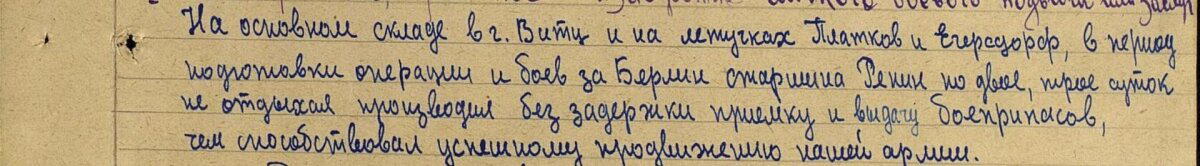 На основном складе в г. Витц и на летучках Платков и Егерсдорф, в период
подготовки операции и боев за Берлин старшина Репин по двое, трое суток
не отдыхая производил без задержки приемку и выдачу боеприпасов,
чем способствовал успешному продвижению нашей армии.